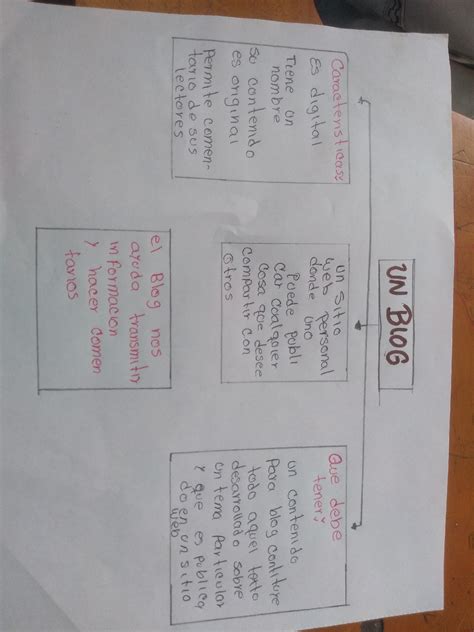 UN BLOG
Caracteristicas:
Es digital
Tiene un
nombre
so contenido
es original
Permite comen-
tario de sus
lectores
un sitio
web personal
donde uno
puede publi
car cualquier
cosa que desee
compartir con
otros
Que debe
tener?
un contenido
Para blog contituye
todo aquel texto
desarrollado sobre
un tema particular
y que es publica
do en un sitio
web
el Blog nos
ayuda transmitir
informacion
y hacer comen
tarios